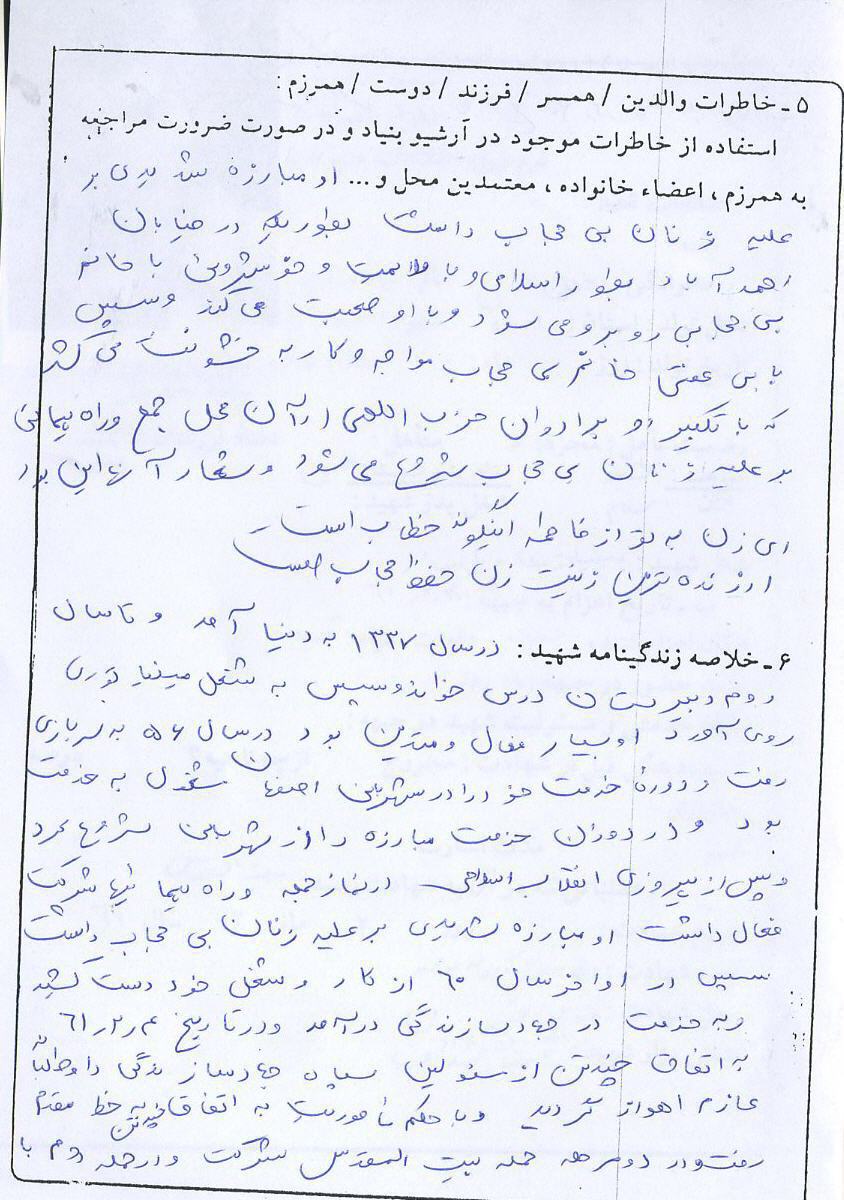 ۵ ـ خاطرات والدین / همسر / فرزند / دوست / همرزم :
استفاده از خاطرات موجود در آرشیو بنیاد و در صورت ضرورت مراجعه
به همرزم ، اعضاء خانواده ، معتمدین محل و ... او مبارزه شدیدی بر
علیه زنان بی حجاب داشت بطوریکه در خیابان
احمد آباد بطور اسلامی و با ملایمت و خوشروئی با خانم
بی حجابی روبرو می شود و با او صحبت می کند و سپس
با بی عفتی خانم بی حجاب مواجه و کار به خشونت می کشد
که با تکبیر او برادران حزب اللهی از آن محل جمع و راه پیمائی
بر علیه زنان بی حجاب شروع می شود و شعار آنها این بود
ای زن به تو از فاطمه اینگونه خطاب است
ارزنده ترین زینت زن حفظ حجاب است
۶ ـ خلاصه زندگینامه شهید : در سال ۱۳۳۷ به دنیا آمد و تا سال
دوم دبیرستان درس خواند و سپس به شغل
روی آورد او بسیار فعال و متدین بود در سال ۵۶ به سربازی
رفت و دورۀ خدمت خود را در شهربانی اصفهان مشغول به خدمت
بود و در دوران خدمت مبارزه را از شهربانی شروع کرد
و پس از پیروزی انقلاب اسلامی در نماز جمعه و راه پیمائیها شرکت
فعال داشت او مبارزه شدیدی بر علیه زنان بی حجاب داشت
سپس در اواخر سال ۶۰ از کار و شغل خود دست کشید
و به خدمت در جهاد سازندگی درآمد و در تاریخ ۶۱/۲/۴
به اتفاق چندتن از مسئولین سپاه جهاد سازندگی داوطلبانه
عازم اهواز گردید و با حکم مأموریت به اتفاق چندتن به خط مقدم
رفت و در دو مرحله حمله بیت المقدس شرکت و در حمله دوم با